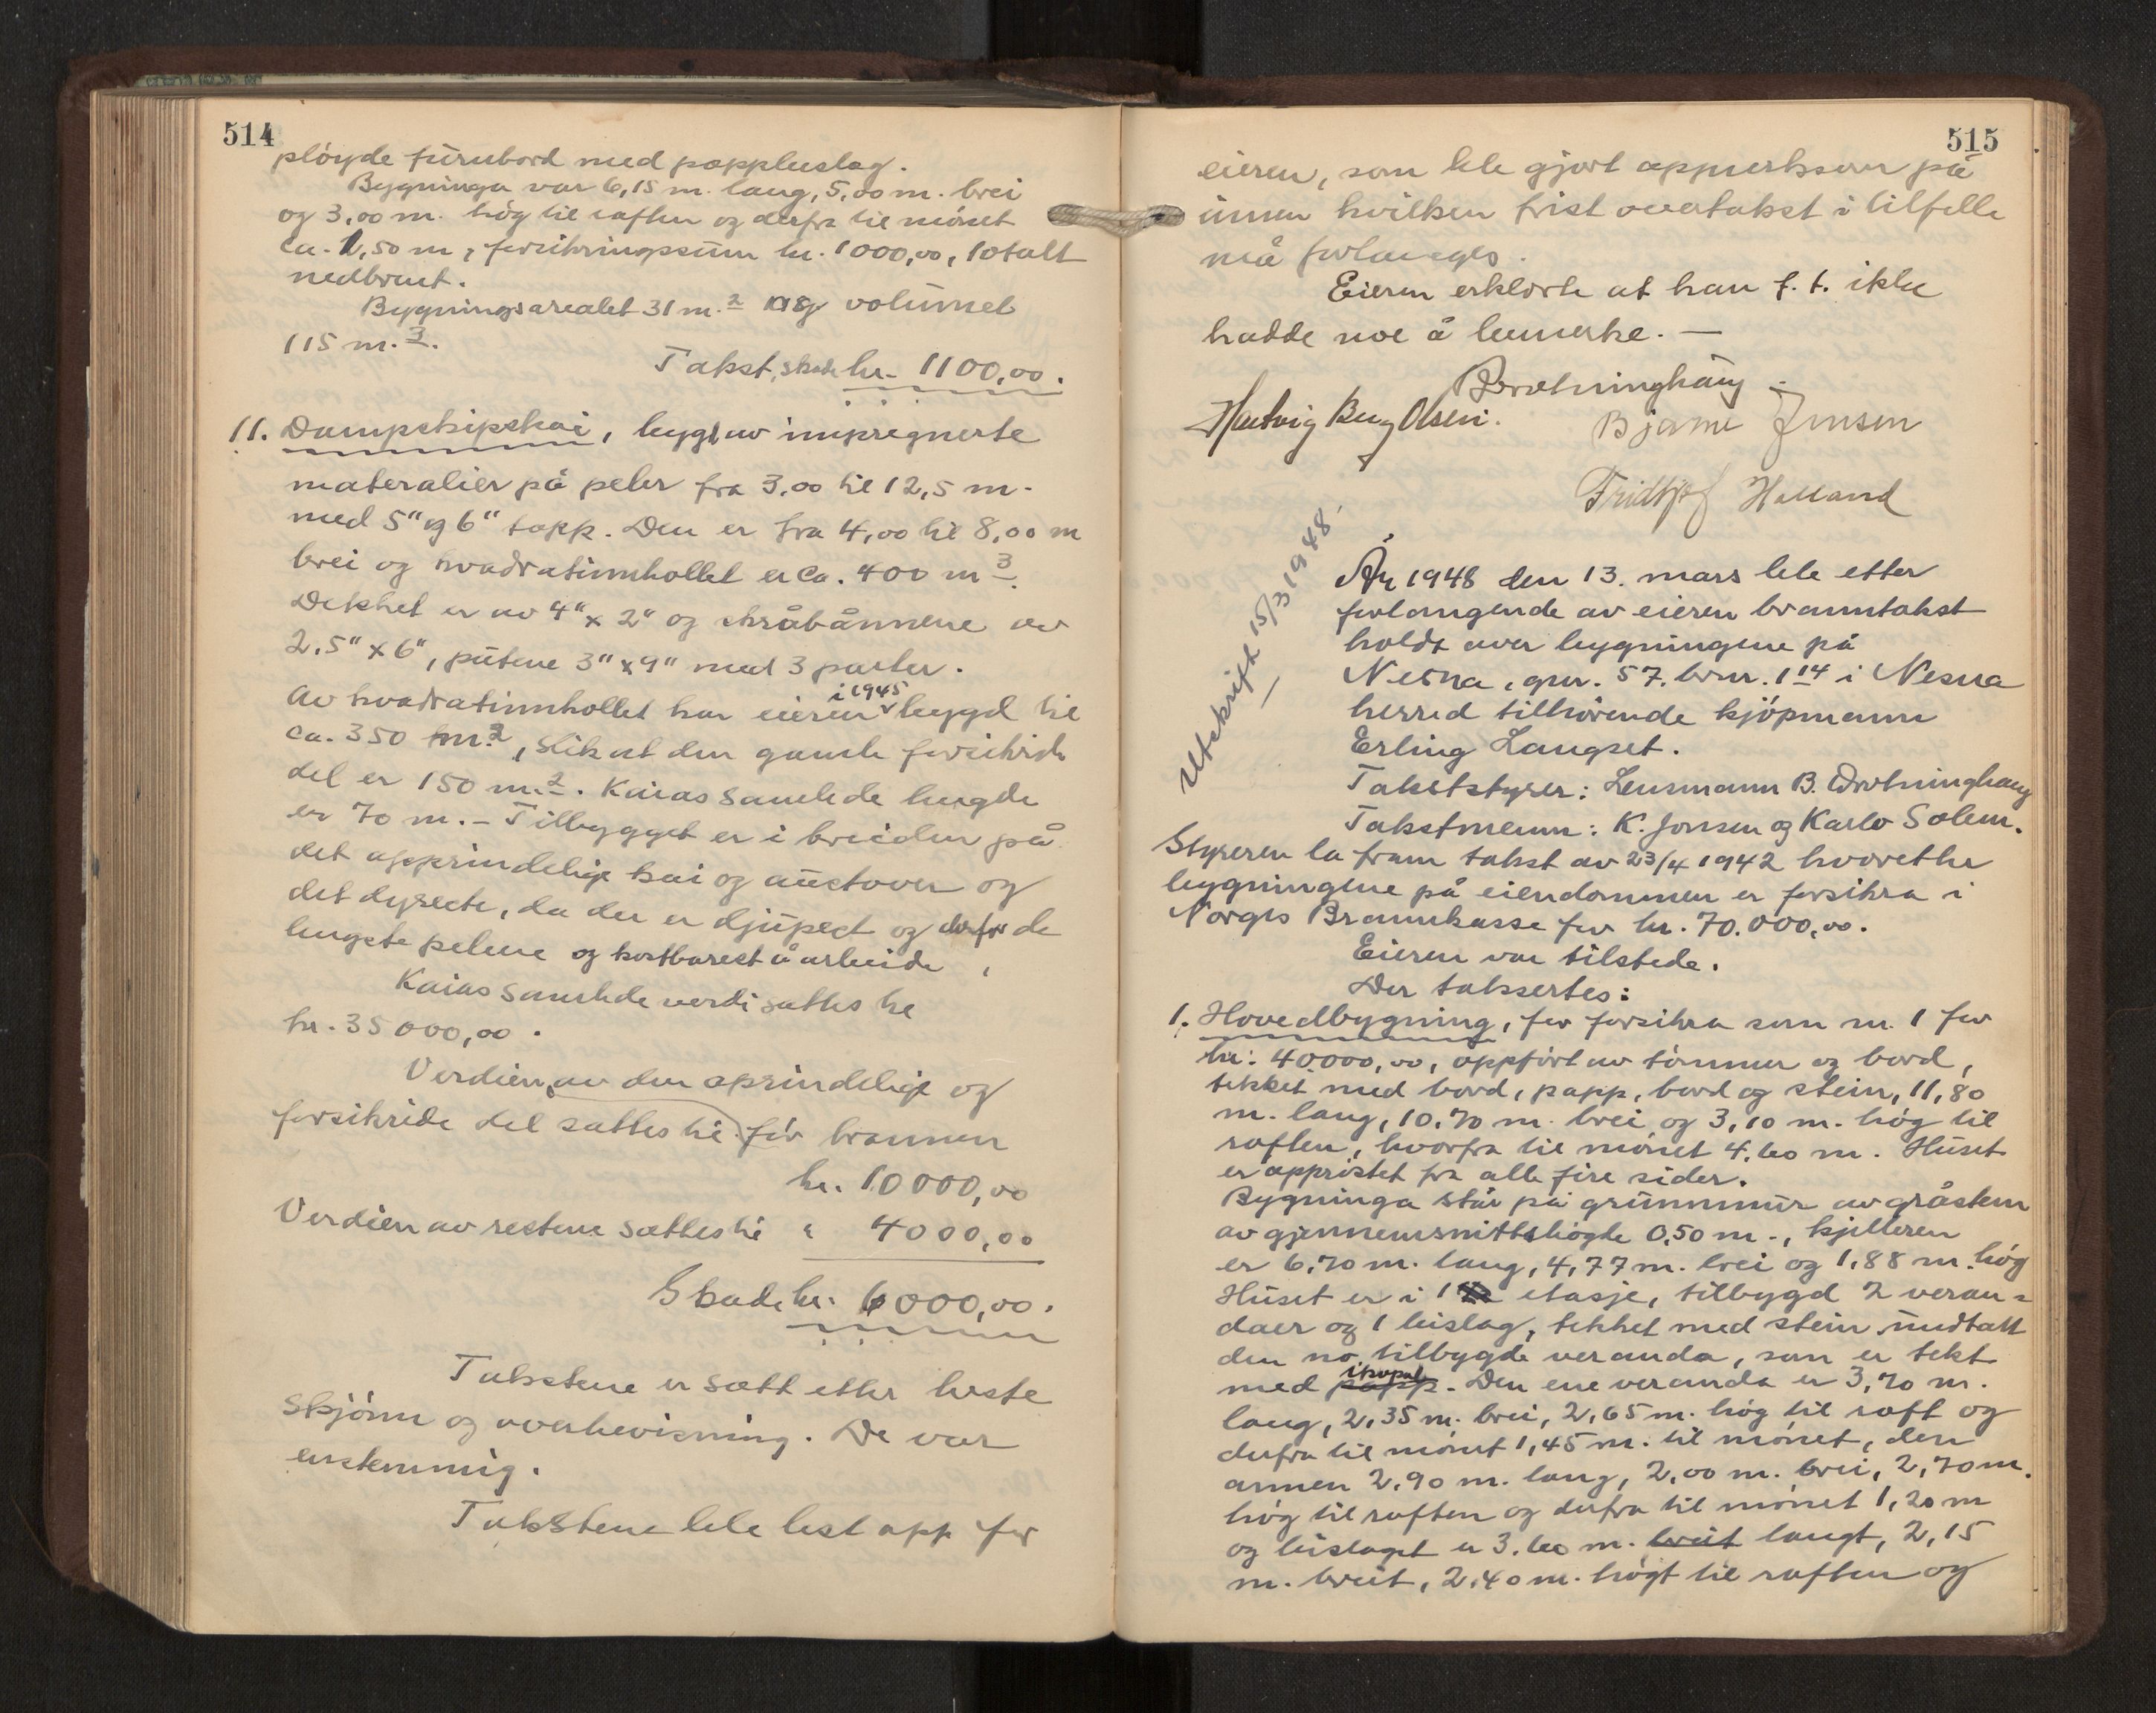 514
pløyde furubord med pappluslag.
Bygninga var 6,15 m. lang, 5,00 m. brei
og 3,00 m. høg til raften og derfra til mønet
ca. 1,50 m, forsikringssum kr. 1000,00, totalt
nedbrent.
Bygningsarealet 31 m.2 og volumet
115 m.3.
Takst, skade kr. 1100,00.
11. Dampskipskai, bygt av impregnerte
materalier på peler fra 3.00 til 12,5 m.
med 5" og 6" topp. Den er fra 4,00 til 8,00 m
brei og kvadratinnhollet er ca. 400 m3.
Dekket er av 4" x 2" og skråbånnene av
2.5" x 6", putene 3" x 9" med 3 parter.
Av kvadratinnhollet har eieren i 1945 bygd til
ca. 350 m.2, slik at den gamle forsikride
del er 150 m.2. Kaias samlede lengde
er 70 m. - Tilbygget er i breiden på
det opprindelige kai og austover og
det dyreste, da der er djupest og derfor de
lengste pelene og kostbarest å arbeide,
Kaias samlede verdi settes til
kr. 35000,00.
Verdien av den oprindelige og
forsikride del settes til før brannen
kr. 10000,00
Verdien av restene settes til " 4000,00
Skade kr. 6000,00.
Takstene er sett etter beste
skjønn og overbevisning. De var
enstemmig.
Takstene ble lest opp for
515
eieren, som ble gjort oppmerksom på
innen hvilken frist overtakst i tilfelle
må forlanges.
Eieren erklærte at han f. t. ikke
hadde noe å bemerke. —
BDrotninghaug.
Hartvig Berg Olsen. Bjarne Jensen
Fridtjof Helland
Utskrift 15/3 1948.
År 1948 den 13. mars ble etter
forlangende av eieren branntakst
holdt over bygningene på
Nesna, gnr. 57. brnr. 114 i Nesna
herred tilhørende kjøpmann
Erling Langset.
Takststyrer: Lensmann B. Drotninghaug
Takstmenn: K. Jonsen og Karlo Solem.
Styreren la fram takst av 23/4 1942 hvoretter
bygningene på eiendommen er forsikra i
Norges Brannkasse for kr. 70.000,00.
Eieren var tilstede.
Der takssertes:
1. Hovedbygning, før forsikra som nr. 1 for
kr: 40000,00, oppført av tømmer og bord,
tekket med bord, papp, bord og stein, 11,80
m. lang, 10,70 m. brei og 3,10 m. høg til
raften, hvorfra til mønet 4,60 m. Huset
er opprøstet fra alle fire sider.
Bygninga står på grunnmur av gråstein
av gjennemsnittshøgde 0,50 m., kjelleren
er 6,70 m. lang, 4,77 m. brei og 1,88 m. høg
Huset er i 1 etasje, tilbygd 2 veran=
daer og 1 bislag, tekket med stein undtatt
den no tilbygde veranda, som er tekt
med papp icopal. Den ene veranda er 3,70 m.
lang, 2,35 m. brei, 2,65 m. høg til raft og
derfra til mønet 1,45 m. til mønet, den
annen 2.90 m. lang, 2,00 m. brei, 2,70 m.
høg til raften og derfra til mønet 1,20 m
og bislaget er 3.60 m. breit langt, 2,15
m. breit, 2.40 m. høgt til raften og